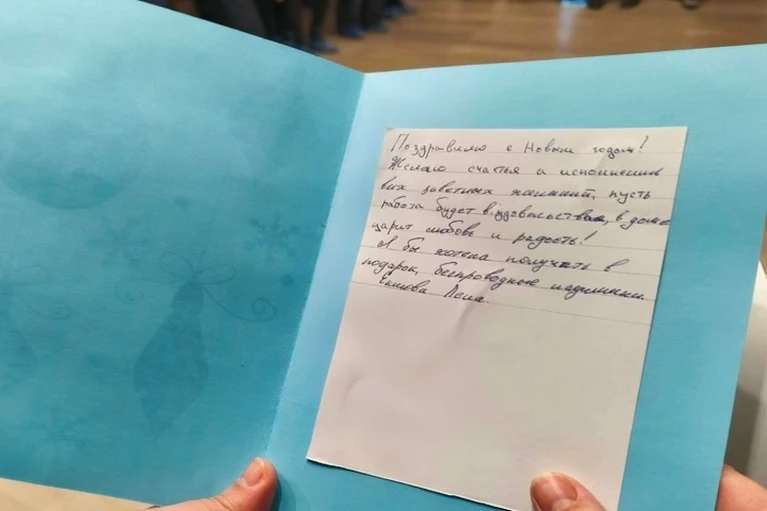 Поздравляю с Новым годом!
Желаю счастья и исполнения
всех заветных желаний, пусть
работа будет в удовольствие, в доме
царит любовь и радость!
Я бы хотела получить в
подарок, беспроводные наушники.
Лена